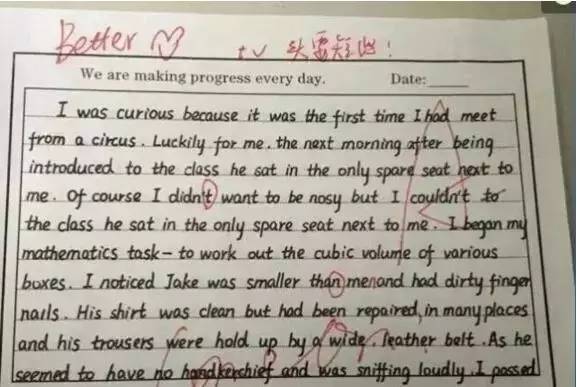 Better
tv 头要短些!
We are making progress every day. Date:
I was curious because it was the first time I had meet
from a circus. Luckily for me, the next morning after being
introduced to the class he sat in the only spare seat next to
me. Of course I didn't want to be nosy but I couldn't to
the class he sat in the only spare seat next to me. I began my
mathematics task - to work out the cubic volume of various
boxes. I noticed Jake was smaller than me and had dirty finger
nails. His shirt was clean but had been repaired, in many places
and his trousers were hold up by a wide, leather belt. As he
seemed to have no handkerchief and was sniffing loudly I passed